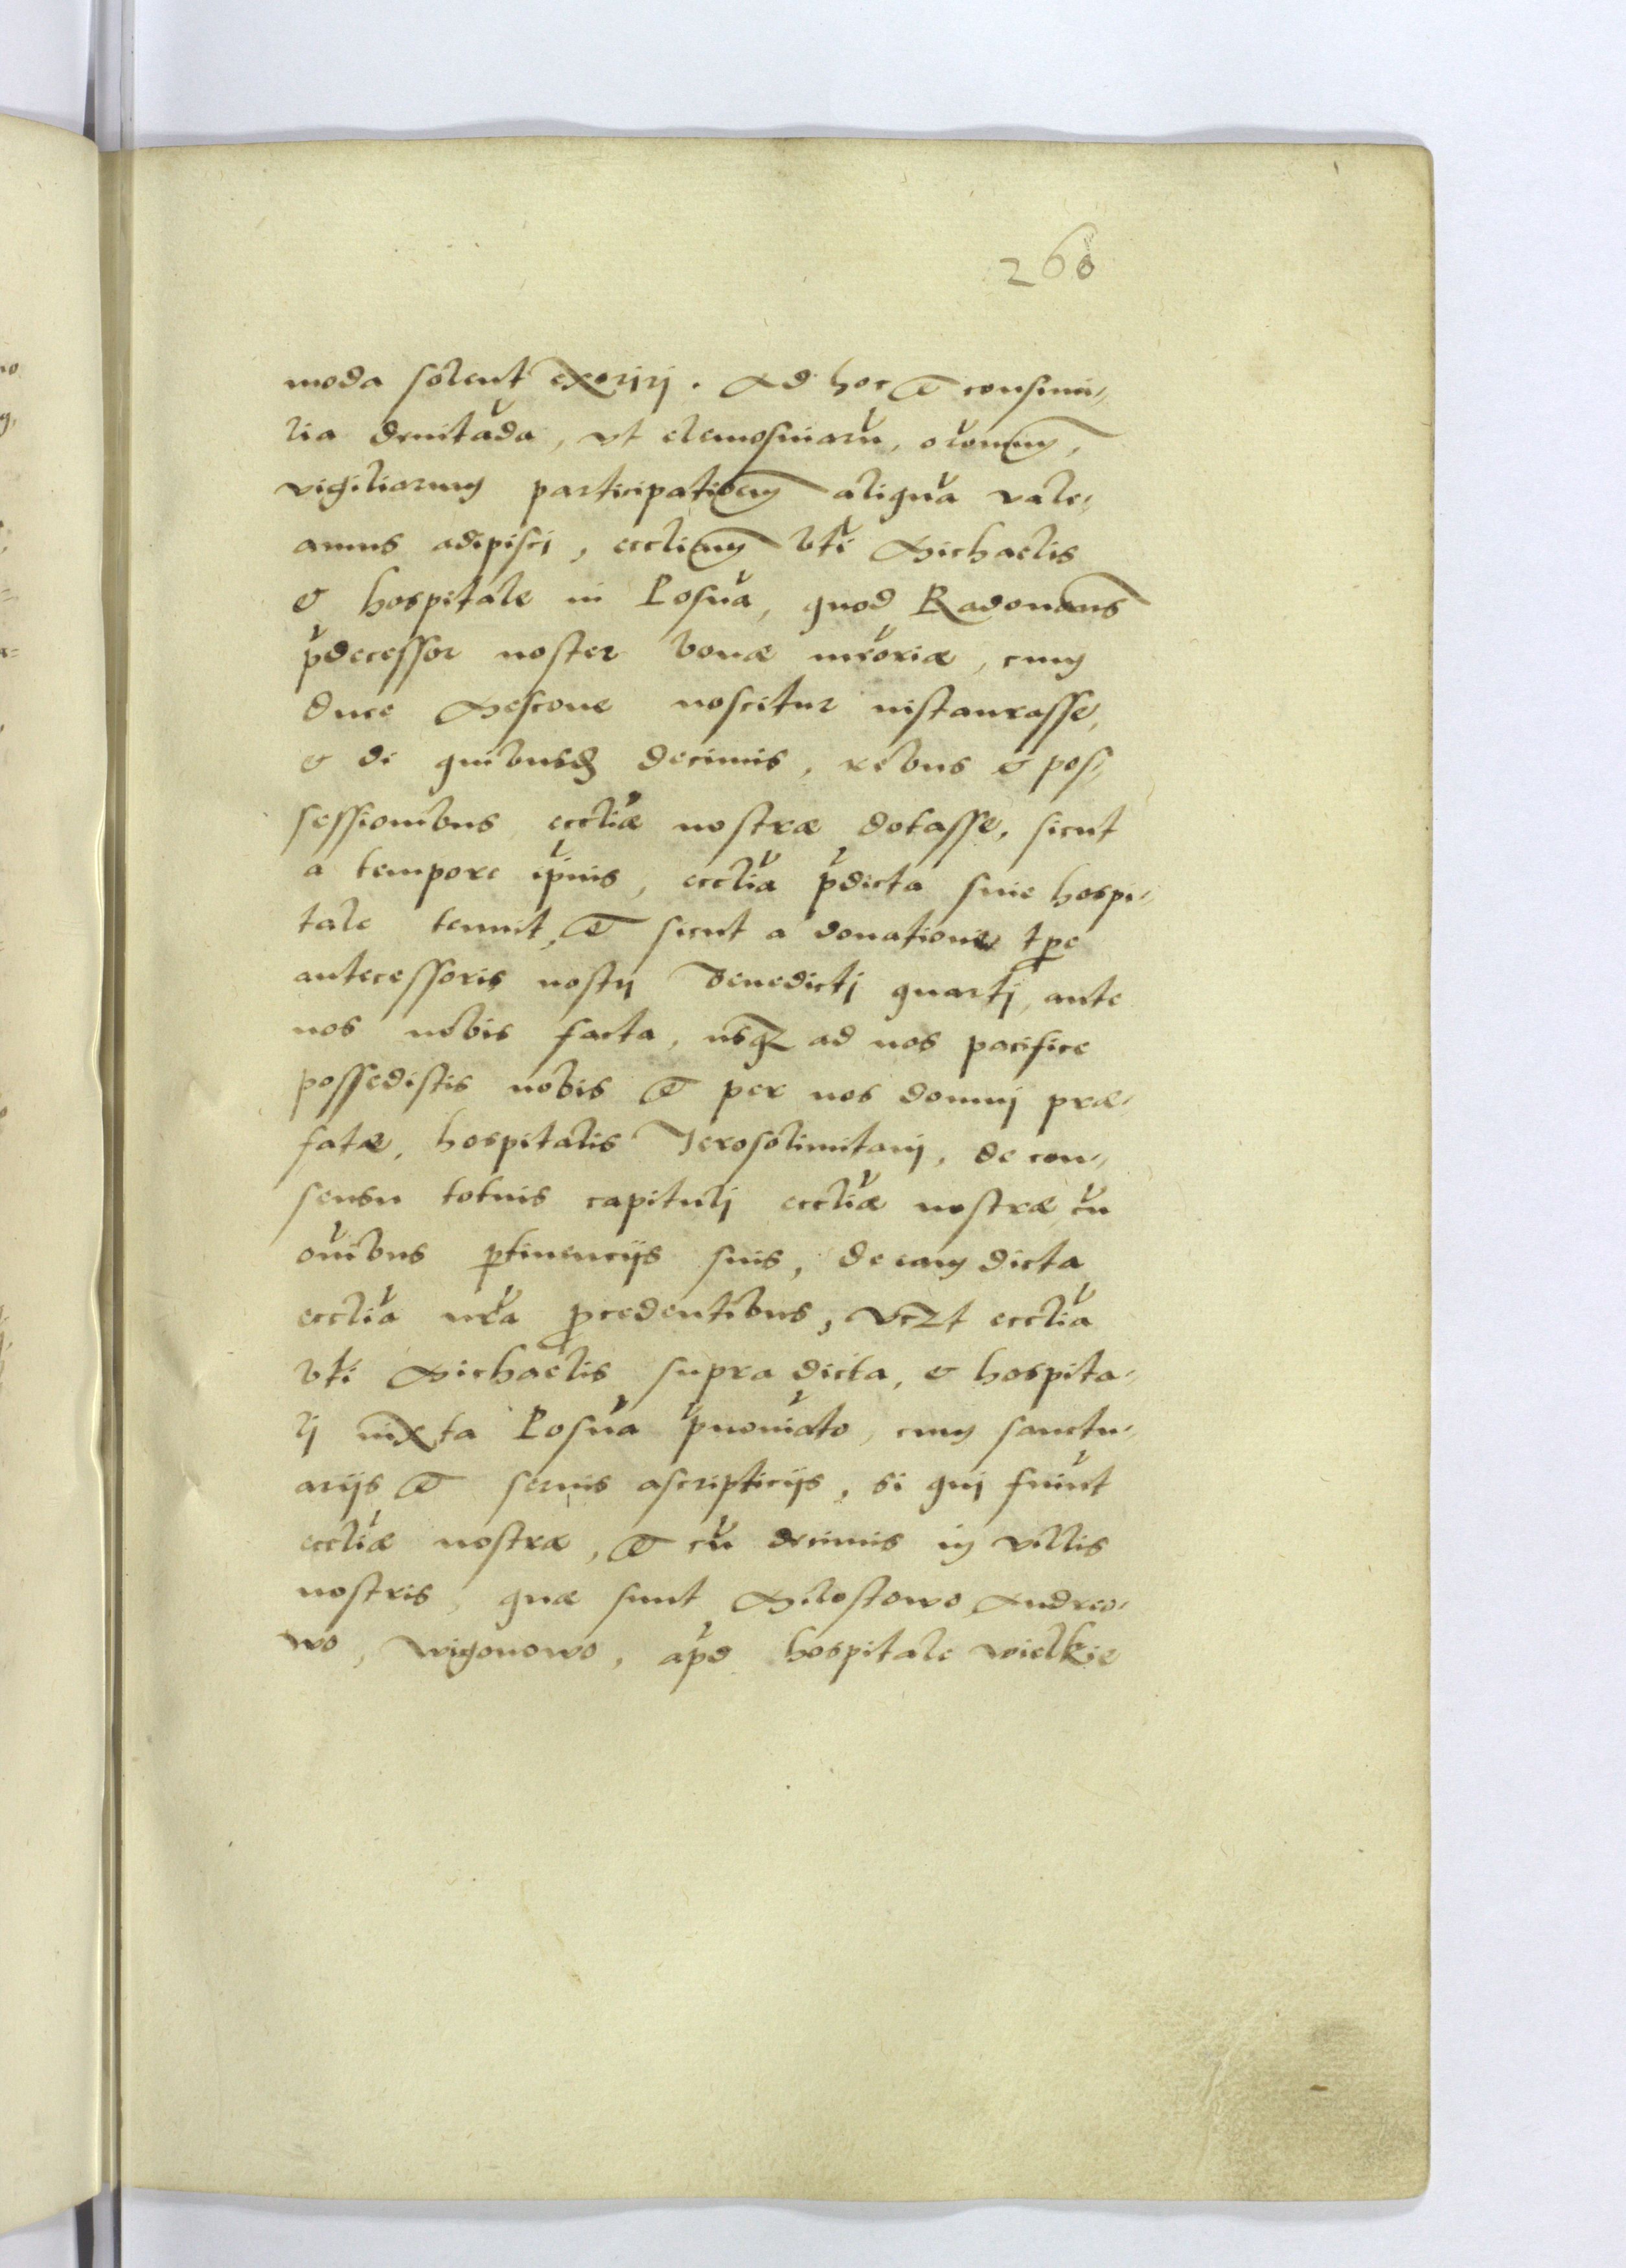 260
moda solent exorirj. Ad hoc & consimi-
lia deuitãda, vt elemosinarũ, orõnum,
vigiliarum participationem aliquã vale-
amus adipiscj, eccliam bti Michaelis
& hospitale in Posnã, quod Radouanus
p̃decessor noster bonæ mẽoriæ, cum
duce Mescone noscitur instaurasse,
& di quibusd decimis, rebus & pos-
sessionibus eccliæ nostræ dotasse, sicut
a tempore ip̃ius, ecclia p̃dicta siue hospi-
tale tenuit, & sicut a donatione tpe
antecessoris nostrj Benedictj quartj, ante
nos nobis facta, usq ad nos pacifice
possedistis nobis & per nos domuj præ-
fatæ, hospitalis Jerosolimitanj, de con-
sensu totuis capitulj eccliæ nostræ cũ
oĩbus ptinencijs suis, de eam dicta
ecclia nrã procedentibus, vczt ecclia
bti Michaelis supra dicta, & hospita-
lj iuxta Posnã p̃noĩato, cum sanctu-
arijs & seruis ascripticijs, si quj fuĩnt
eccliæ nostræ, & cũ decimis in villis
nostris, quæ sunt Milostowo, Andreo-
wo, wigonowo, apd hospitale wielkie